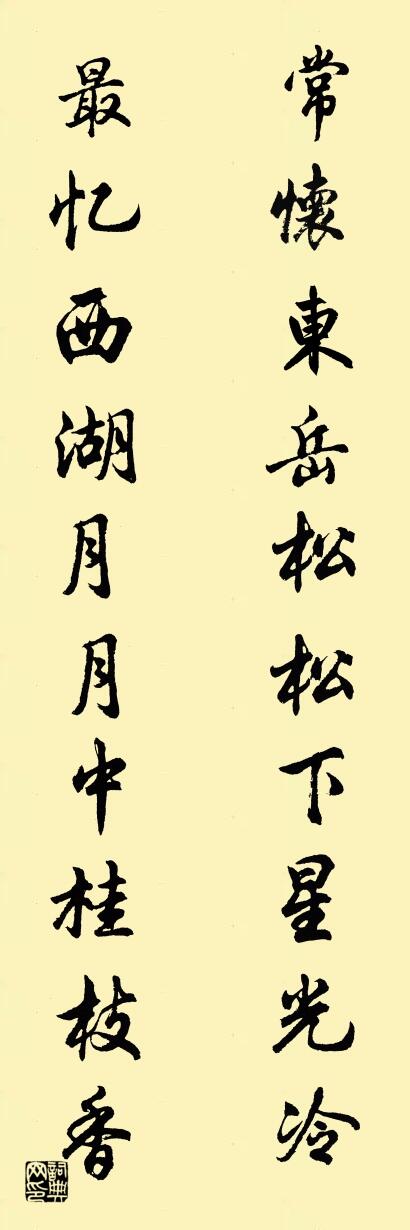 常懷東岳松松下星光冷
最忆西湖月月中桂枝香
詞典网印